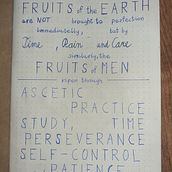 FRUITS of the EARTH
are NOT brought to perfection
immediately, but by
Time, Rain and Care
similarly, the
FRUITS of MEN
ripen through
ASCETIC
PRACTICE
STUDY, TIME
PERSEVERANCE
SELF-CONTROL
PATIENCE